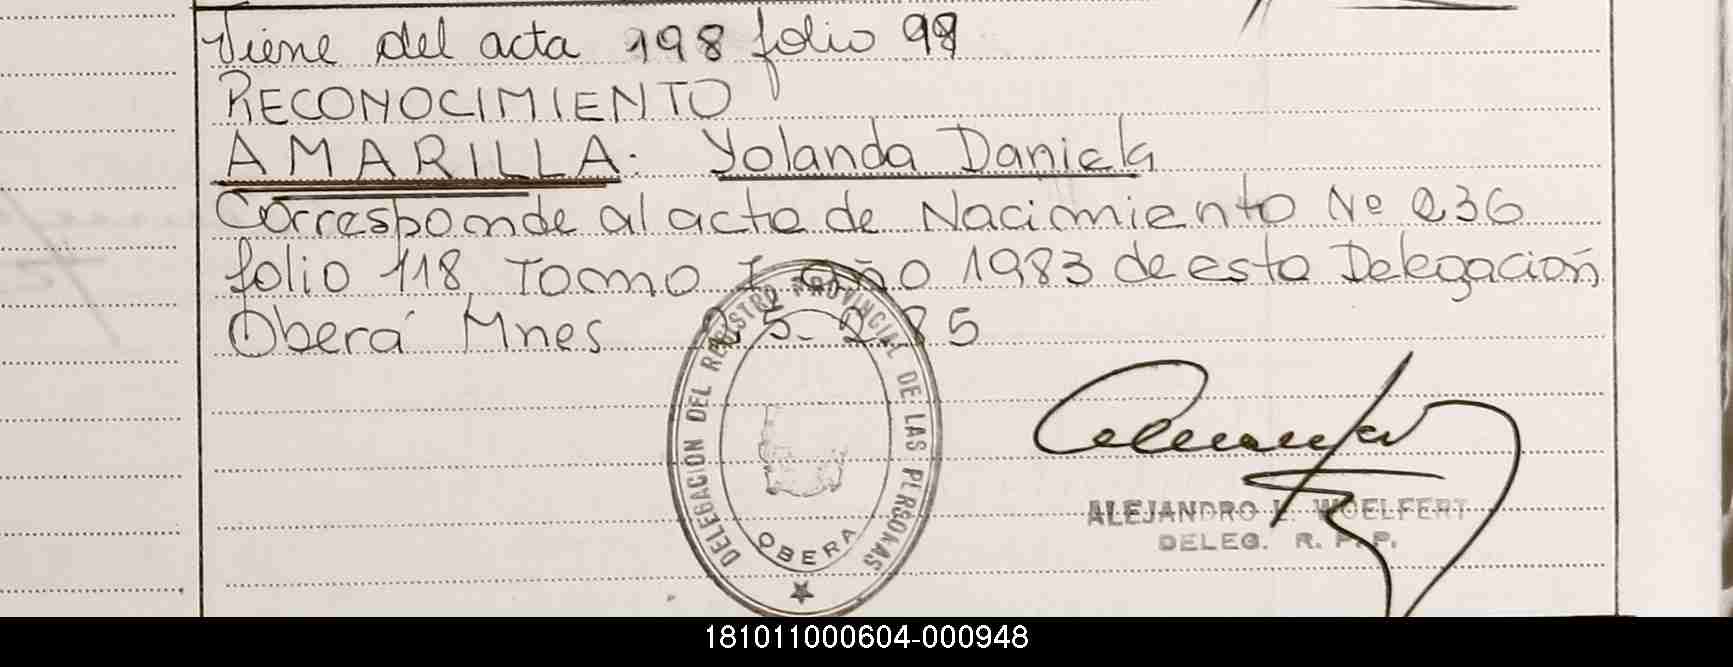 Viene del acta 198 folio 99
RECONOCIMIENTO
AMARILLA: Yolanda Daniela
Corresponde al acta de Nacimiento Nº 236
folio 118 Tomo I año 1983 de esta Delegación
Oberá Mnes 25-2-85
DELEGACION DEL REGISTRO PROVINCIAL DE LAS PERSONAS
OBERA
ALEJANDRO L. WOELFERT
DELEG. R. P. P.
181011000604-000948